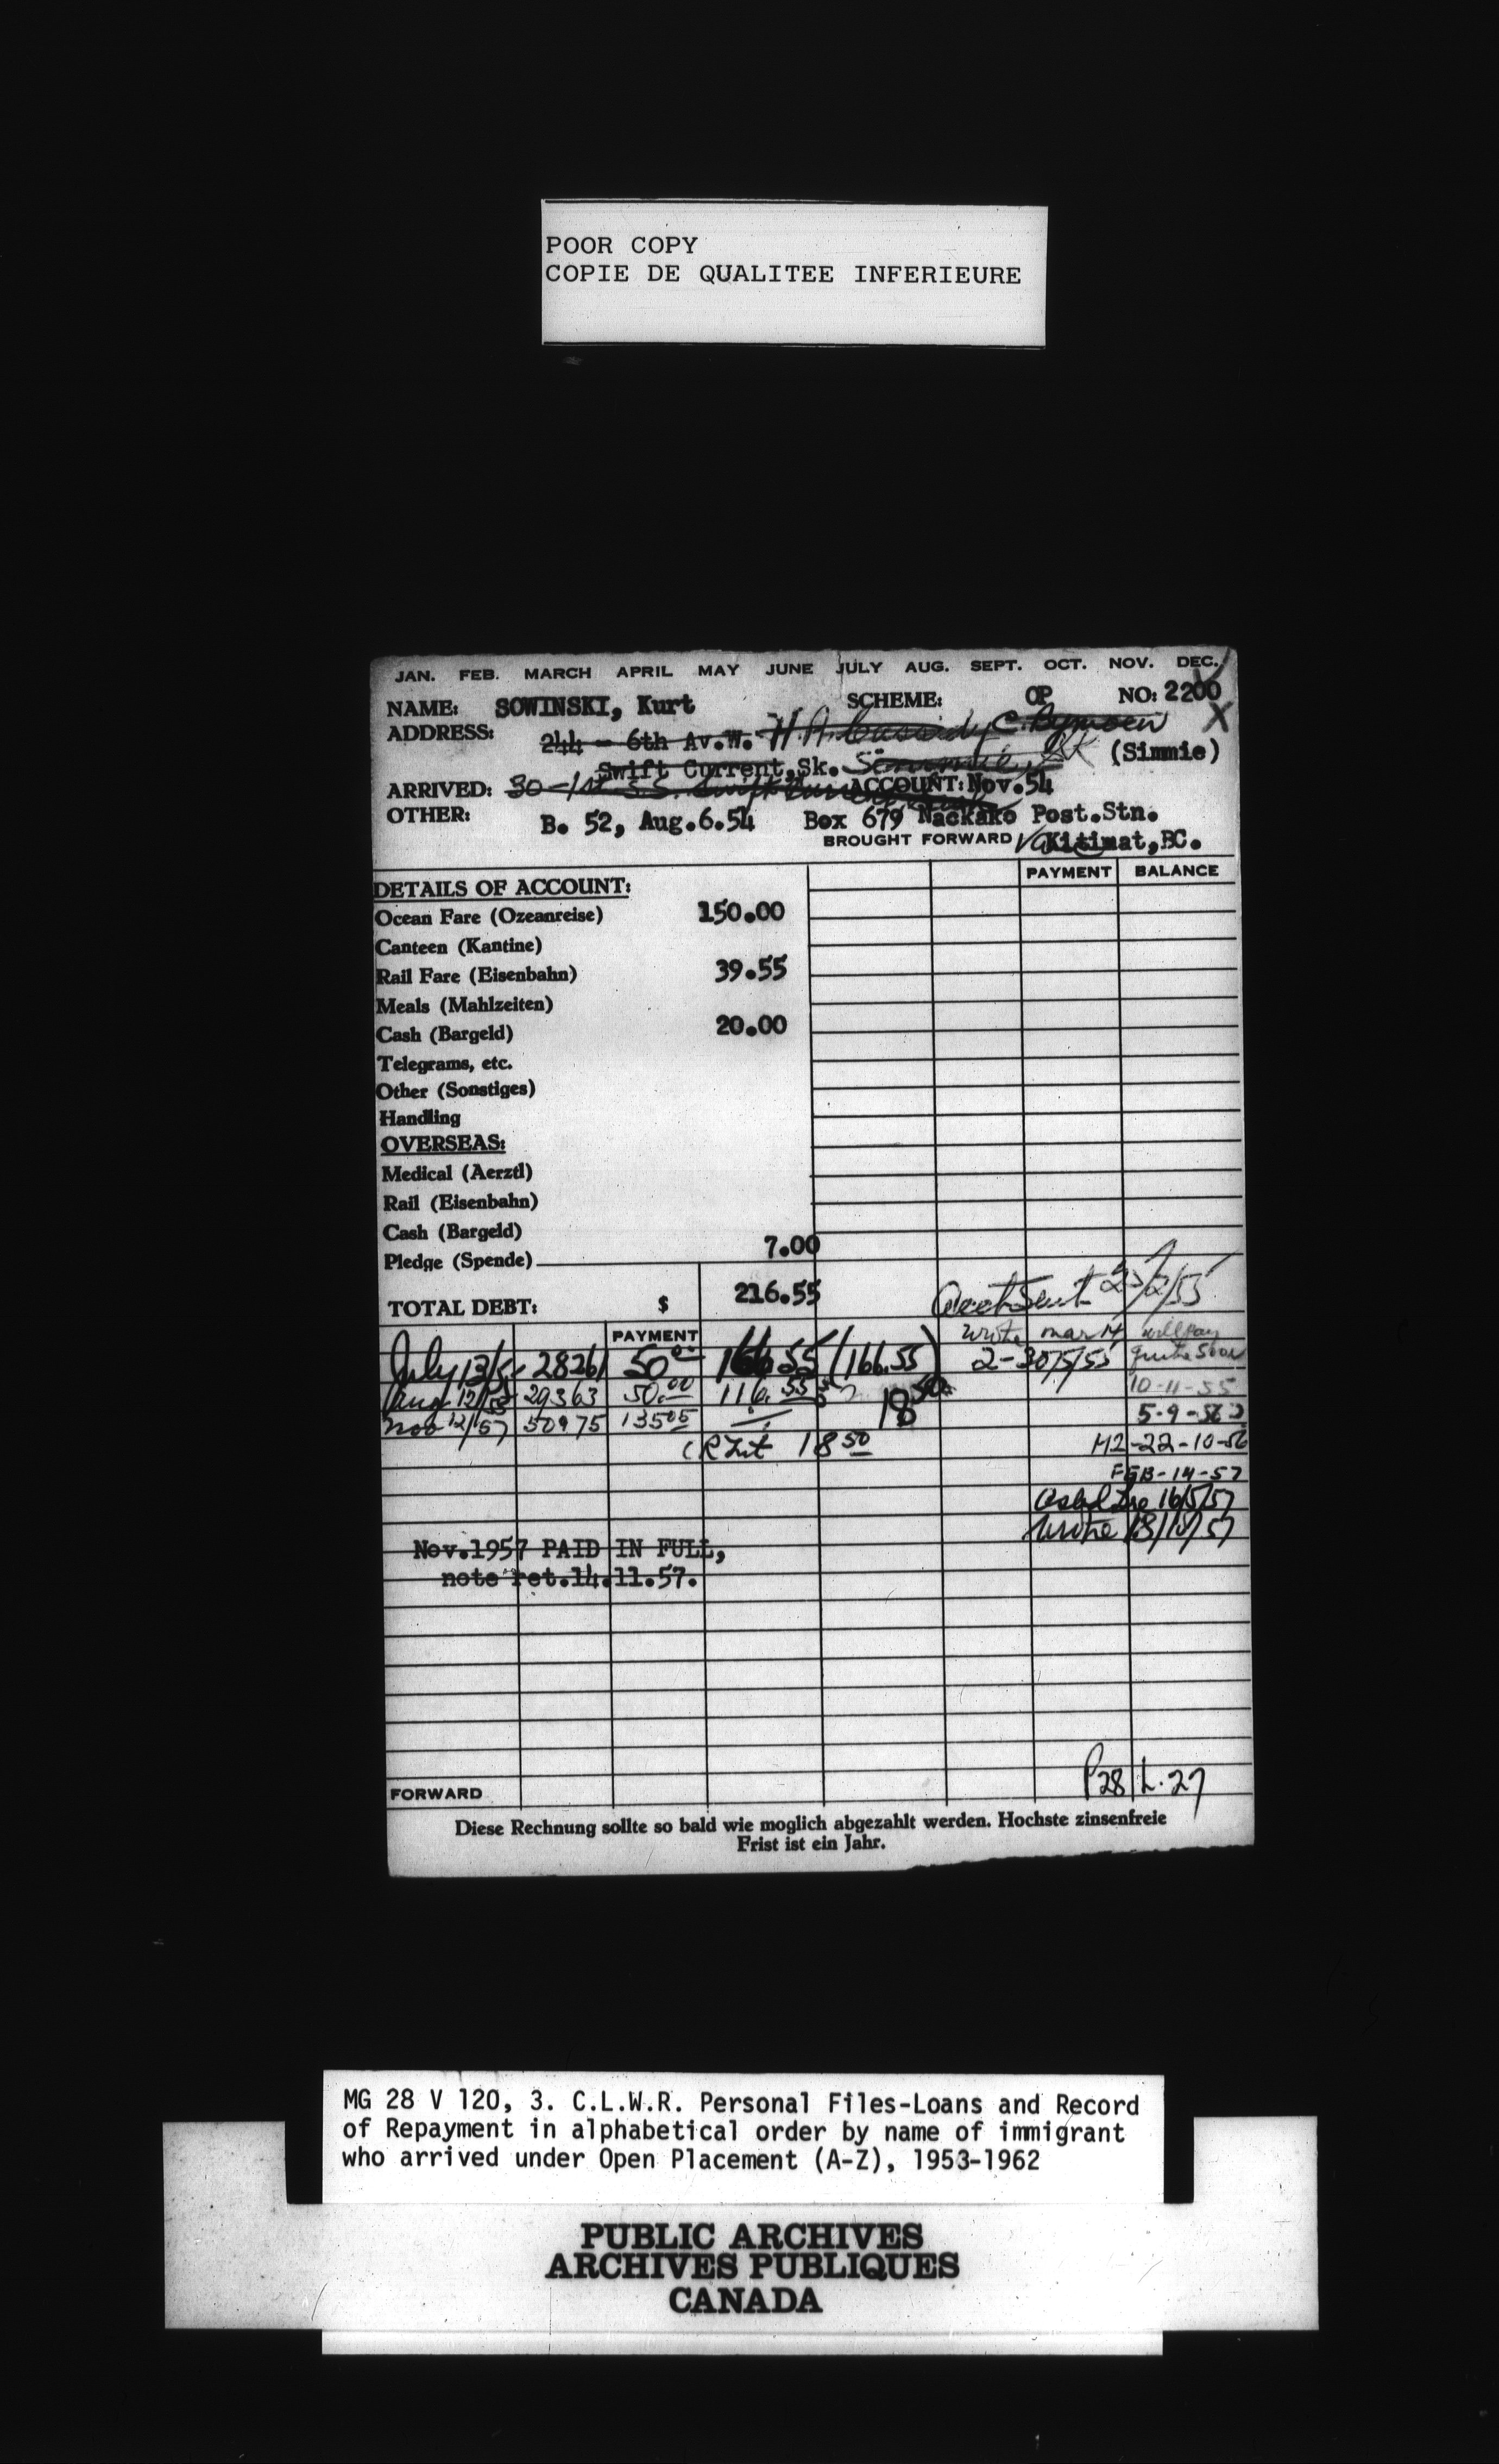 POOR COPY
COPIE DE QUALITEE INFERIEURE
JAN. FEB. MARCH APRIL MAY JUNE JULY AUG. SEPT. OCT. NOV. DEC.
NAME: SOWINSKI, Kurt SCHEME: OP NO: 2200
ADDRESS: 244 - 6th Av.W. H. A. Cassidy C. X
Swift Current, Sk. Simmie, SK (Simmie)
ARRIVED: 30-1st S.S. Swift Current ACCOUNT: Nov.54
OTHER: B. 52, Aug.6.54 Box 679 Nackako Post.Stn.
BROUGHT FORWARD Kitimat, BC.
PAYMENT BALANCE
DETAILS OF ACCOUNT:
Ocean Fare (Ozeanreise) 150.00
Canteen (Kantine)
Rail Fare (Eisenbahn) 39.55
Meals (Mahlzeiten)
Cash (Bargeld) 20.00
Telegrams, etc.
Other (Sonstiges)
Handling
OVERSEAS:
Medical (Aerztl)
Rail (Eisenbahn)
Cash (Bargeld)
Pledge (Spende) 7.00
TOTAL DEBT: $ 216.55 Acct Sent 23/2/55
PAYMENT wrote mar 14 will pay
July 13/5 28261 50.00 166.55 (166.55) 2-30/5/55 quite soon
Aug 12/55 29363 50.00 116.55 18.50 10-11-55
Nov 12/57 50975 135.05 5-9-56
CR Lit 18.50 M2-22-10-56
FEB-14-57
16/5/57
Wrote 18/10/57
Nov.1957 PAID IN FULL,
note ret.14.11.57.
P28 L.27
FORWARD
Diese Rechnung sollte so bald wie moglich abgezahlt werden. Hochste zinsenfreie
Frist ist ein Jahr.
MG 28 V 120, 3. C.L.W.R. Personal Files-Loans and Record
of Repayment in alphabetical order by name of immigrant
who arrived under Open Placement (A-Z), 1953-1962
PUBLIC ARCHIVES
ARCHIVES PUBLIQUES
CANADA